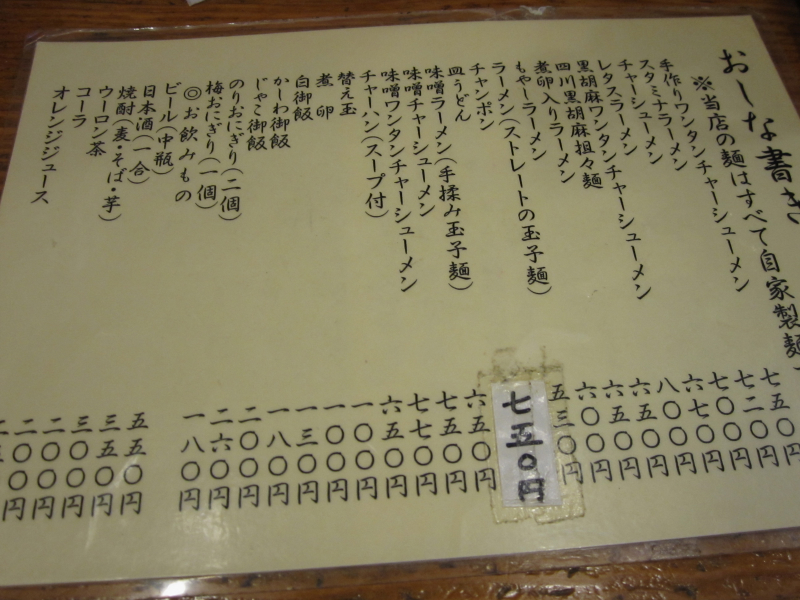 おしな書き
※当店の麺はすべて自家製麺
手作りワンタンチャーシューメン
スタミナラーメン
チャーシューメン
レタスラーメン
黒胡麻ワンタンチャーシューメン
四川黒胡麻担々麺
煮卵入りラーメン
もやしラーメン
ラーメン(ストレートの玉子麺)
チャンポン
皿うどん
味噌ラーメン(手揉み玉子麺)
味噌チャーシューメン
味噌ワンタンチャーシューメン
チャーハン(スープ付)
替え玉
煮卵
白御飯
かしわ御飯
じゃこ御飯
のりおにぎり(二個)
梅おにぎり(一個)
◎お飲みもの
ビール(中瓶)
日本酒(一合)
焼酎(麦・そば・芋)
ウーロン茶
コーラ
オレンジジュース
七五〇円
七二〇円
七〇〇円
六七〇円
八〇〇円
六五〇円
六五〇円
六〇〇円
五三〇円
七五〇円
六五〇円
七五〇円
七七〇円
六五〇円
一〇〇円
一〇〇円
一三〇円
一八〇円
二〇〇円
二六〇円
一八〇円
五五〇円
三五〇円
三〇〇円
二〇〇円
二〇〇円